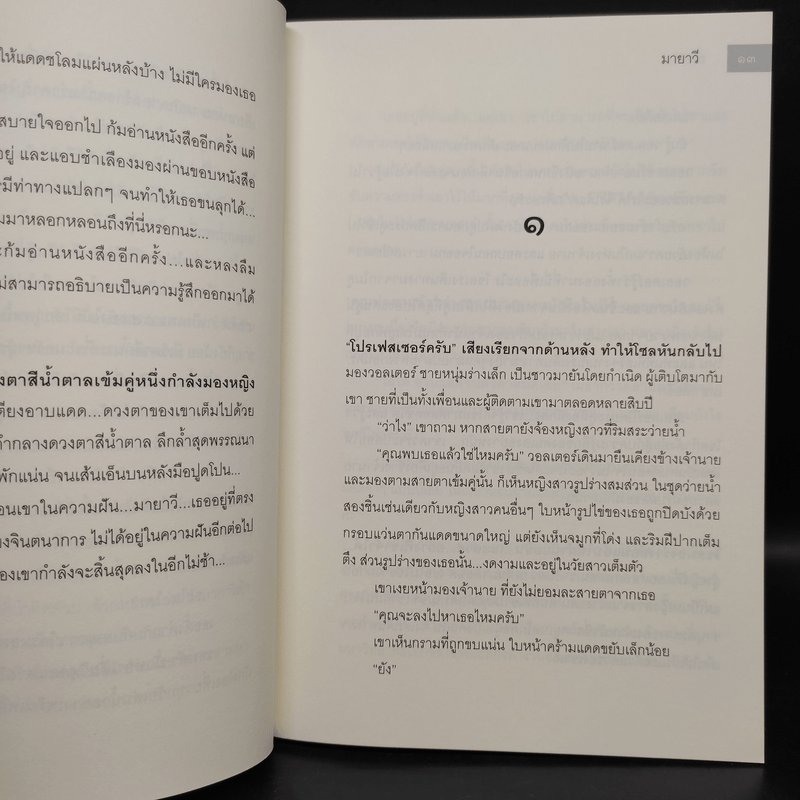 ให้แดดชโลมแผ่นหลังบ้าง ไม่มีใครมองเธอ
สบายใจออกไป ก้มอ่านหนังสืออีกครั้ง แต่
อยู่ และแอบชำเลืองมองผ่านขอบหนังสือ
มีท่าทางแปลกๆ จนทำให้เธอขนลุกได้...
มาหลอกหลอนถึงที่นี่หรอกนะ...
ก้มอ่านหนังสืออีกครั้ง...และหลงลืม
สามารถอธิบายเป็นความรู้สึกออกมาได้
ตาสีน้ำตาลเข้มคู่หนึ่งกำลังมองหญิง
เตียงอาบแดด...ดวงตาของเขาเต็มไปด้วย
กลางดวงตาสีน้ำตาล ลึกล้ำสุดพรรณนา
พักแน่น จนเส้นเอ็นบนหลังมือปูดโปน...
เขาในความฝัน...มายาวี...เธออยู่ที่ตรง
จินตนาการ ไม่ได้อยู่ในความฝันอีกต่อไป
ของเขากำลังจะสิ้นสุดลงในอีกไม่ช้า...
มายาวี ๑๓
๑
“โปรเฟสเซอร์ครับ” เสียงเรียกจากด้านหลัง ทำให้โซลหันกลับไป
มองวอลเตอร์ ชายหนุ่มร่างเล็ก เป็นชาวมายันโดยกำเนิด ผู้เติบโตมากับ
เขา ชายที่เป็นทั้งเพื่อนและผู้ติดตามเขามาตลอดหลายสิบปี
“ว่าไง” เขาถาม หากสายตายังจ้องหญิงสาวที่ริมสระว่ายน้ำ
“คุณพบเธอแล้วใช่ไหมครับ” วอลเตอร์เดินมายืนเคียงข้างเจ้านาย
และมองตามสายตาเข้มคู่นั้น ก็เห็นหญิงสาวรูปร่างสมส่วน ในชุดว่ายน้ำ
สองชิ้นเช่นเดียวกับหญิงสาวคนอื่นๆ ใบหน้ารูปไข่ของเธอถูกปิดบังด้วย
กรอบแว่นตากันแดดขนาดใหญ่ แต่ยังเห็นจมูกที่โด่ง และริมฝีปากเต็ม
ตึง ส่วนรูปร่างของเธอนั้น...งดงามและอยู่ในวัยสาวเต็มตัว
เขาเงยหน้ามองเจ้านาย ที่ยังไม่ยอมละสายตาจากเธอ
“คุณจะลงไปหาเธอไหมครับ”
เขาเห็นกรามที่ถูกขบแน่น ใบหน้าคร้ามแดดขยับเล็กน้อย
“ยัง”